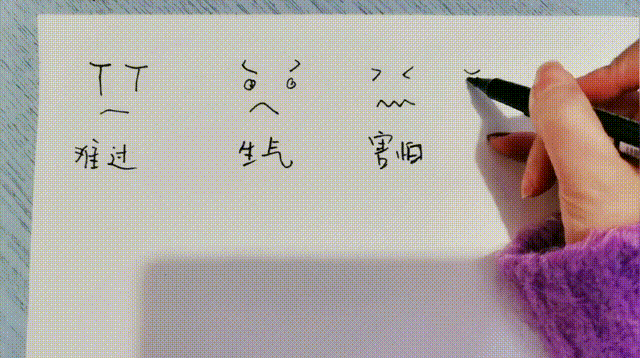 难过 生气 害怕